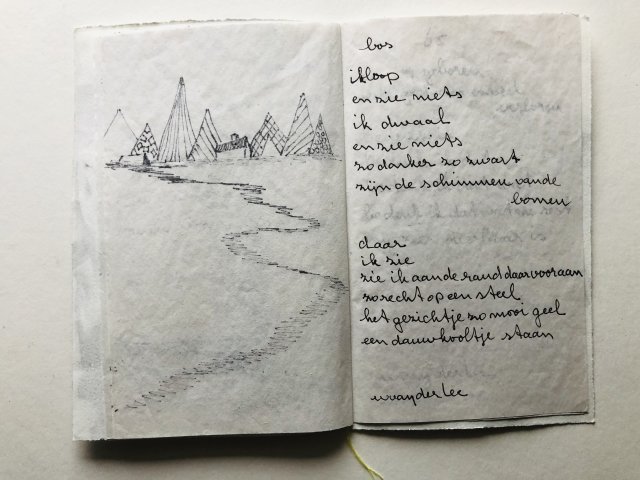 bos
ik loop
en zie niets
ik dwaal
en zie niets
zo donker zo zwart
zijn de schimmen van de
bomen
daar
ik zie
zie ik aan de rand daar vooraan
zo recht op een steel
het gezichtje zo mooi geel
een dauwkooltje staan